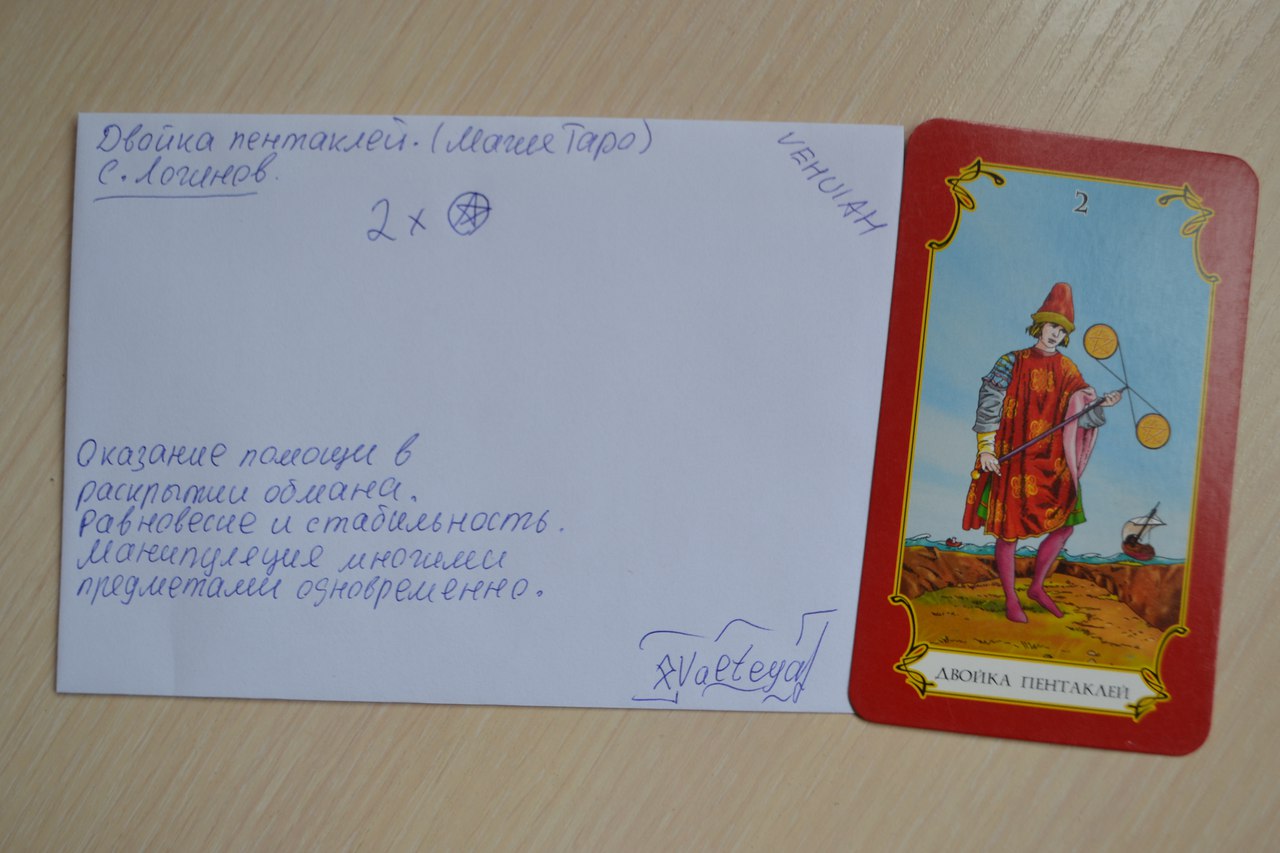 Двойка пентаклей. (Магия Таро)
С. Логинов.
2 x
VEHUIAH
Оказание помощи в
раскрытии обмана.
Равновесие и стабильность.
Манипуляция многими
предметами одновременно.
Valteya
2
ДВОЙКА ПЕНТАКЛЕЙ